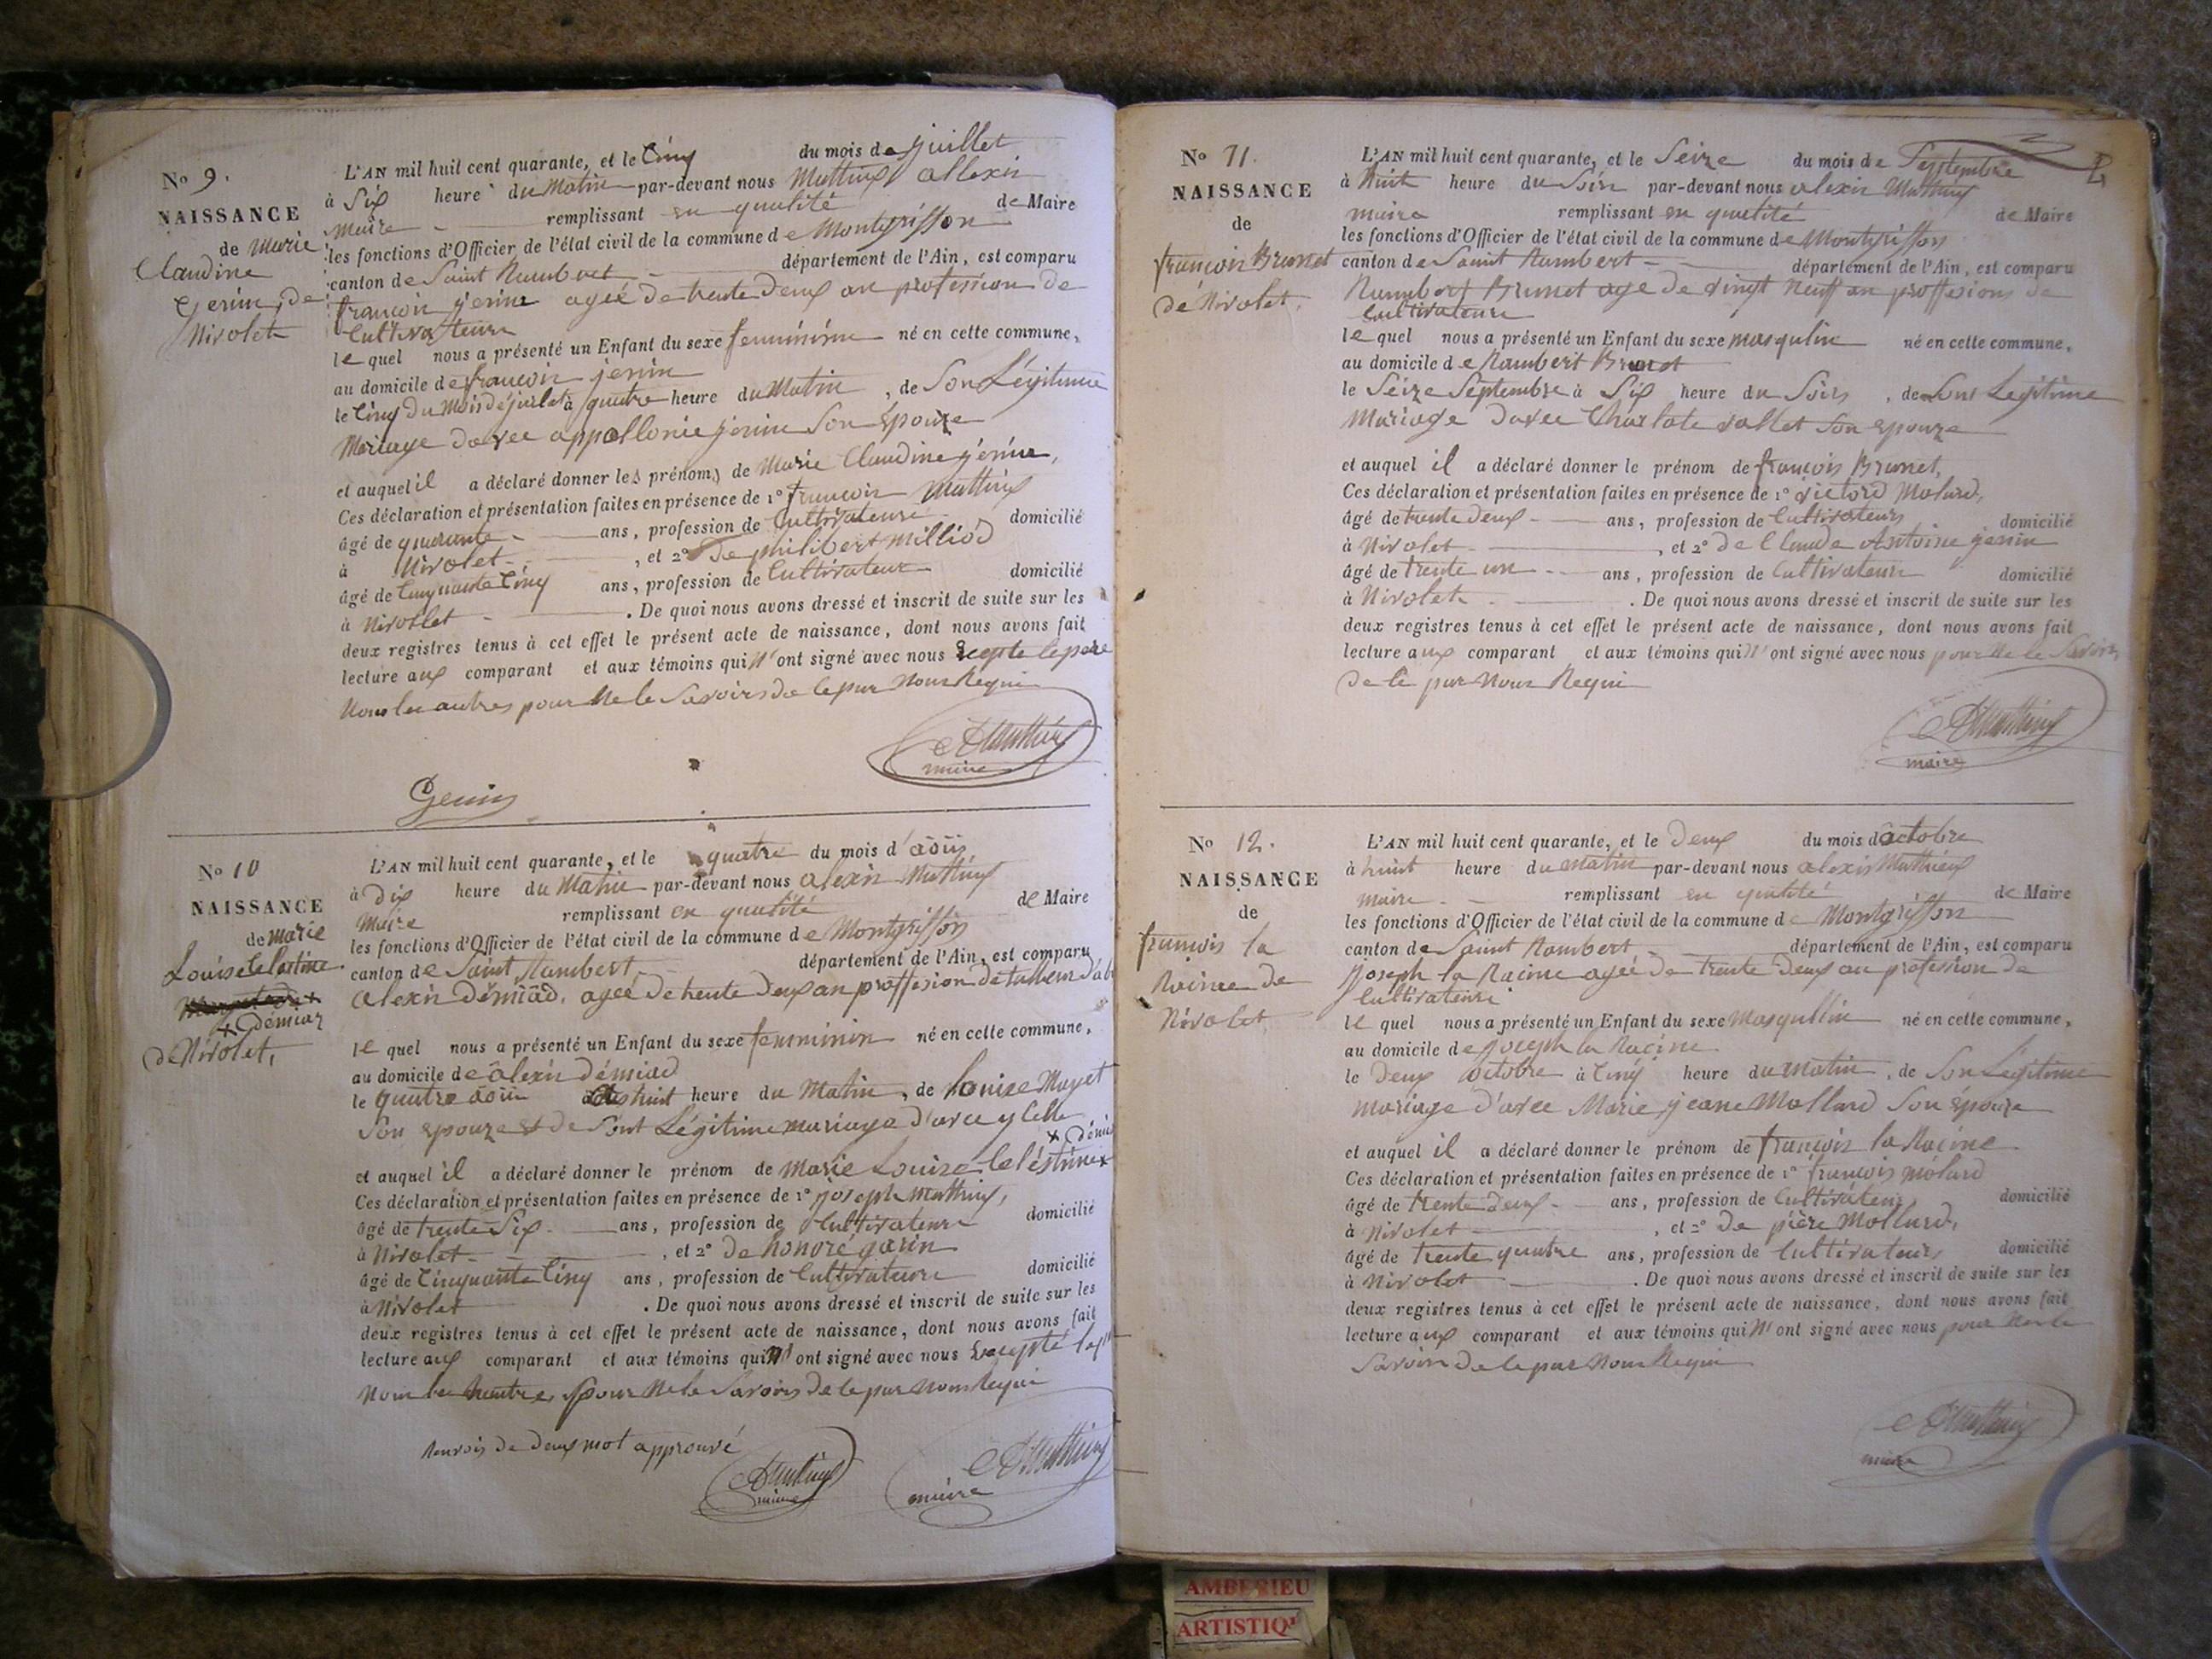 No 9.
NAISSANCE
de Marie
Claudine
Genin, de
Nivolet
L'AN mil huit cent quarante, et le Cinq du mois de juillet
à Six heure du Matin par-devant nous Matthieux allexis
Maire remplissant en qualité de Maire
les fonctions d'Officier de l'état civil de la commune de Montgriffon
canton de Saint Rambert département de l'Ain, est comparu
françois jenin ageé de trente deux an profession de
Cultivateure
le quel nous a présenté un Enfant du sexe femminime né en cette commune,
au domicile de françois jenin
le Cinq du Mois de juilet à quatre heure du Matin, de Son Légitime
Mariage davec appollonie jenin Son Epouze
et auquel il a déclaré donner les prénoms de Marie Claudine génin,
Ces déclaration et présentation faites en présence de 1º françois Matthieux
âgé de quarante ans, profession de Cultivateure domicilié
à Nivolet, et 2º De philibert Milliod
âgé de Cinquante Cinq ans, profession de Cultivateur domicilié
à Nivollet. De quoi nous avons dressé et inscrit de suite sur les
deux registres tenus à cet effet le présent acte de naissance, dont nous avons fait
lecture aux comparant et aux témoins qui N'ont signé avec nous Exepte le pere
Nom les autres pour Ne le Savoirs de le par Nous Requi
maire
Genin
No 10
NAISSANCE
de marie
Louise Celestine
x démiaz
de Nivolet,
L'AN mil huit cent quarante, et le quatre du mois d'aöüs
à Dix heure du Matin par-devant nous alexis Matthieux
Maire remplissant en qualité de Maire
les fonctions d'Officier de l'état civil de la commune de Montgriffon
canton de Saint Rambert département de l'Ain, est comparu
alexis Démiad, ageé de trente deux an proffesion de
le quel nous a présenté un Enfant du sexe femminin né en cette commune,
au domicile de âlexis démiad
le quatre aöüt à huit heure du Matin, de Louise Mayet
Son epouze et de Sont Légitime mariage d'avec ycelle
et auquel il a déclaré donner le prénom de Marie Louise Celéstine x
Ces déclaration et présentation faites en présence de 1º joseph Matthieux,
âgé de trente Six ans, profession de Cultivateure domicilié
à Nivolet, et 2º De honoré garin
âgé de Cinquante Cinq ans, profession de Cultivateure domicilié
à Nivolet. De quoi nous avons dressé et inscrit de suite sur les
deux registres tenus à cet effet le présent acte de naissance, dont nous avons fait
lecture aux comparant et aux témoins qui N'ont signé avec nous Excepté
Nom les hautres pour Ne le Savoirs de le par nous Requi
Renvois de deux mot approuvé
maire
maire
No 11.
NAISSANCE
de
françois Brunet
de Nivolet.
L'AN mil huit cent quarante, et le Seize du mois de Septembre
à huit heure du Soir par-devant nous alexis Matthieux
maire remplissant en qualité de Maire
les fonctions d'Officier de l'état civil de la commune de Montgriffon
canton de Saint Rambert département de l'Ain, est comparu
Rambert Brunet age de vingt Neuf an proffesions de
Cultivateure
le quel nous a présenté un Enfant du sexe masqulin né en cette commune,
au domicile de Rambert Brunet
le Seize Septembre à Six heure du Soirs, de Sont Legitime
Mariage Davec Charlote vallet Son epouze
et auquel il a déclaré donner le prénom de françois Brunet,
Ces déclaration et présentation faites en présence de 1º victord Molard,
âgé de trente deux ans, profession de Cultivateurs domicilié
à Nivolet, et 2º de Claude Antoine genin
âgé de trente un ans, profession de Cultivateure domicilié
à Nivolet. De quoi nous avons dressé et inscrit de suite sur les
deux registres tenus à cet effet le présent acte de naissance, dont nous avons fait
lecture aux comparant et aux témoins qui N'ont signé avec nous pour Ne le Savoirs
de le par Nous Requi
maire
No 12.
NAISSANCE
de
françois la
Racine de
Nivolet
L'AN mil huit cent quarante, et le Deux du mois d'octobre
à huit heure du matin par-devant nous alexis Matthieux
maire remplissant en qualité de Maire
les fonctions d'Officier de l'état civil de la commune de Montgriffon
canton de Saint Rambert département de l'Ain, est comparu
joseph la Racine ageé de trente Deux an profession de
Cultivateure
le quel nous a présenté un Enfant du sexe Masqullin né en cette commune,
au domicile de joseph la Racine
le Deux octobre à Cinq heure du matin, de Son Légitime
mariage d'avec Marie jeane Mollard Son épouze
et auquel il a déclaré donner le prénom de françois la Racine
Ces déclaration et présentation faites en présence de 1º françois molard
âgé de trente Deux ans, profession de Cultivateurs domicilié
à Nivolet, et 2º De pière Mollard,
âgé de trente quatre ans, profession de Cultivateurs domicilié
à Nivolet. De quoi nous avons dressé et inscrit de suite sur les
deux registres tenus à cet effet le présent acte de naissance, dont nous avons fait
lecture aux comparant et aux témoins qui N'ont signé avec nous pour Ne le
Savoirs de le par Nous Requi
maire
AMBERIEU
ARTISTIQ